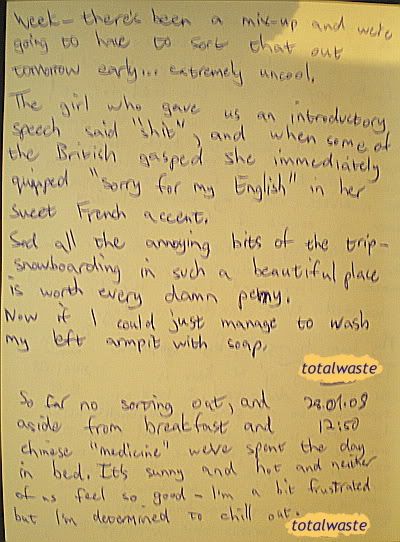 Week - there's been a mix-up and we're
going to have to sort that out
tomorrow early... extremely uncool.
The girl who gave us an introductory
speech said "shit", and when some of
the British gasped she immediately
quipped "sorry for my English" in her
sweet French accent.
Sod all the annoying bits of the trip -
snowboarding in such a beautiful place
is worth every damn penny.
Now if I could just manage to wash
my left armpit with soap.
totalwaste
So far no sorting out, and 28.01.09
aside from breakfast and 12:50
chinese "medicine" we've spent the day
in bed. It's sunny and hot and neither
of us feel so good - I'm a bit frustrated
but I'm determined to chill out.
totalwaste